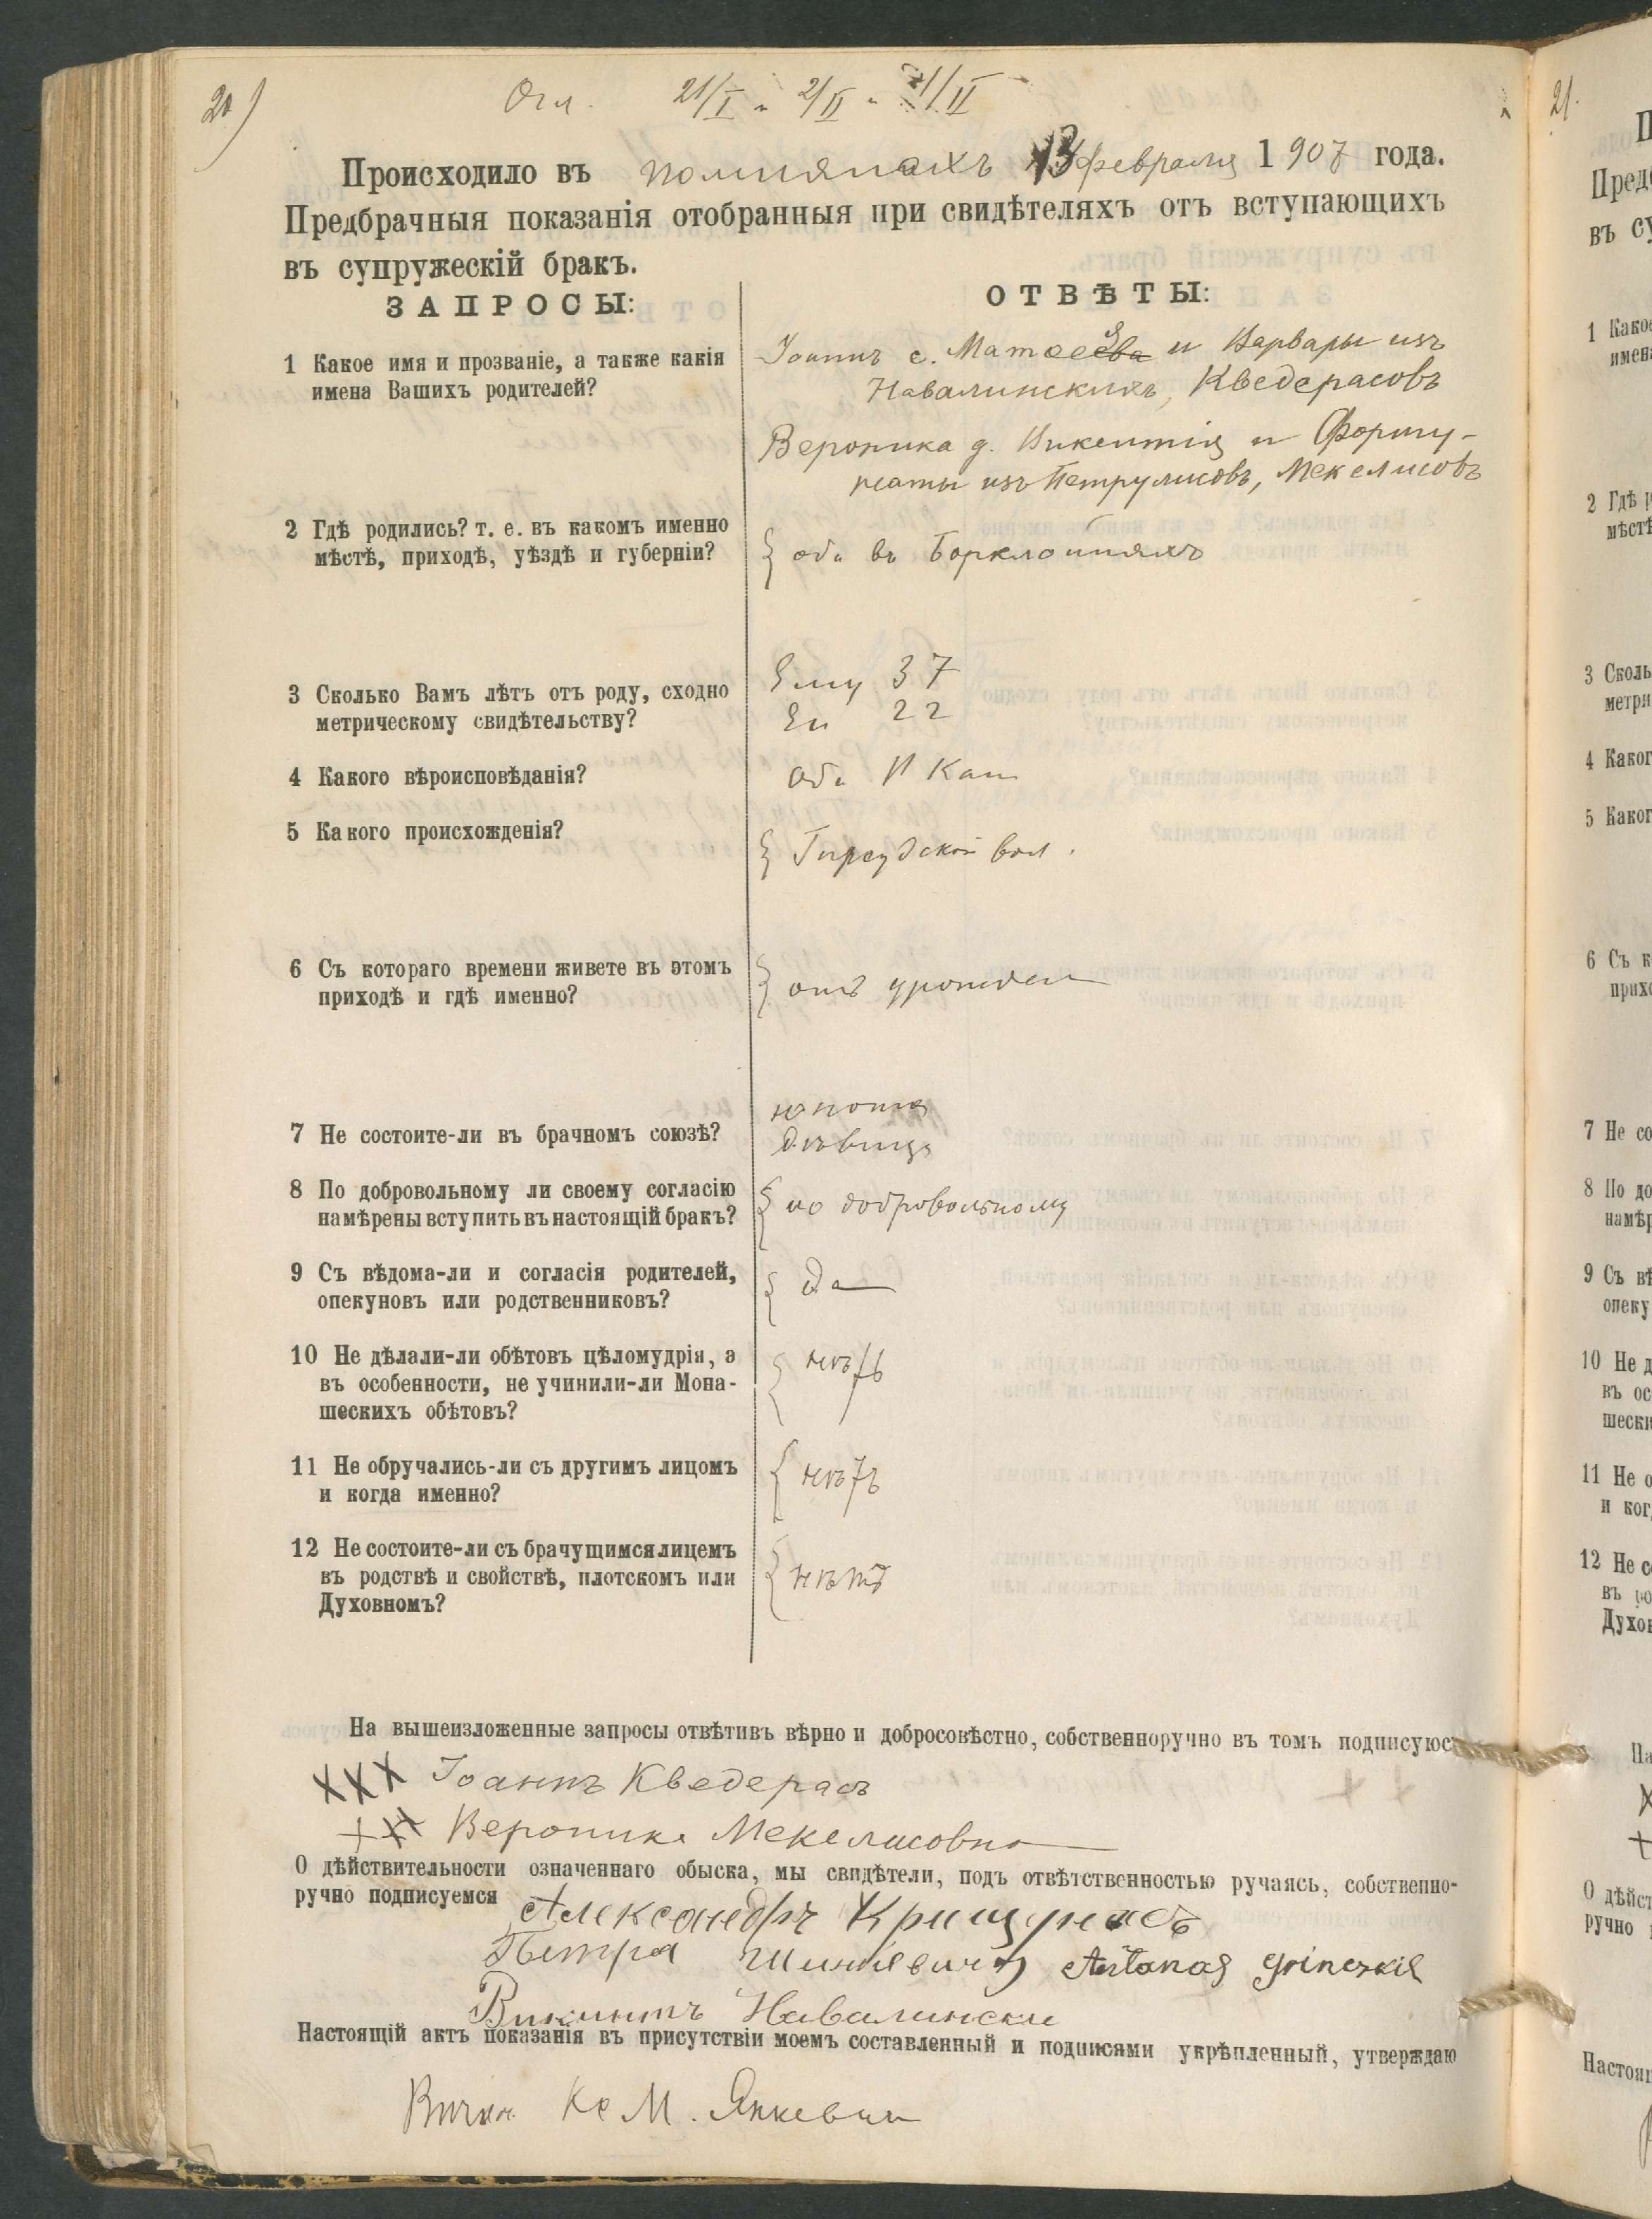 20)
Огл. 21/I " 2/II " /II
Происходило въ 13 февраля 1907 года.
Предбрачныя показанія отобранныя при свидѣтеляхъ отъ вступающихъ
въ супружескій бракъ.
ЗАПРОСЫ:
ОТВѢТЫ:
1 Какое имя и прозваніе, а также какія
имена Вашихъ родителей?
Іоаннъ с. и Варвары изъ
Навалинскихъ, Кведерасовъ
Вероника д. Викентія и Форту-
наты изъ Петрулисовъ, Мекелисовъ
2 Гдѣ родились? т. е. въ какомъ именно
мѣстѣ, приходѣ, уѣздѣ и губерніи?
оба въ Борклойняхъ
3 Сколько Вамъ лѣтъ отъ роду, сходно
метрическому свидѣтельству?
Ему 37
Ей 22
4 Какого вѣроисповѣданія?
оба Р Кат
5 Какого происхожденія?
Гирсудской вол.
6 Съ котораго времени живете въ этомъ
приходѣ и гдѣ именно?
отъ урожден
7 Не состоите-ли въ брачномъ союзѣ?
юноша
дѣвица
8 По добровольному ли своему согласію
намѣрены вступить въ настоящій бракъ?
по добровольному
9 Съ вѣдома-ли и согласія родителей,
опекуновъ или родственниковъ?
да
10 Не дѣлали-ли обѣтовъ цѣломудрія, а
въ особенности, не учинили-ли Мона-
шескихъ обѣтовъ?
нѣтъ
11 Не обручались-ли съ другимъ лицомъ
и когда именно?
нѣтъ
12 Не состоите-ли съ брачущимся лицемъ
въ родствѣ и свойствѣ, плотскомъ или
Духовномъ?
нѣтъ
На вышеизложенные запросы отвѣтивъ вѣрно и добросовѣстно, собственноручно въ томъ подписуюс
XXX Іоаннъ Кведерасъ
+++ Вероника Мекелисовна
О дѣйствительности означеннаго обыска, мы свидѣтели, подъ отвѣтственностью ручаясь, собственно-
ручно подписуемся Александръ Кришунасъ
Петра Antanas Grinczkis
Навалински
Настоящій актъ показанія въ присутствіи моемъ составленный и подписями укрѣпленный, утверждаю
Кс М. Янкевич